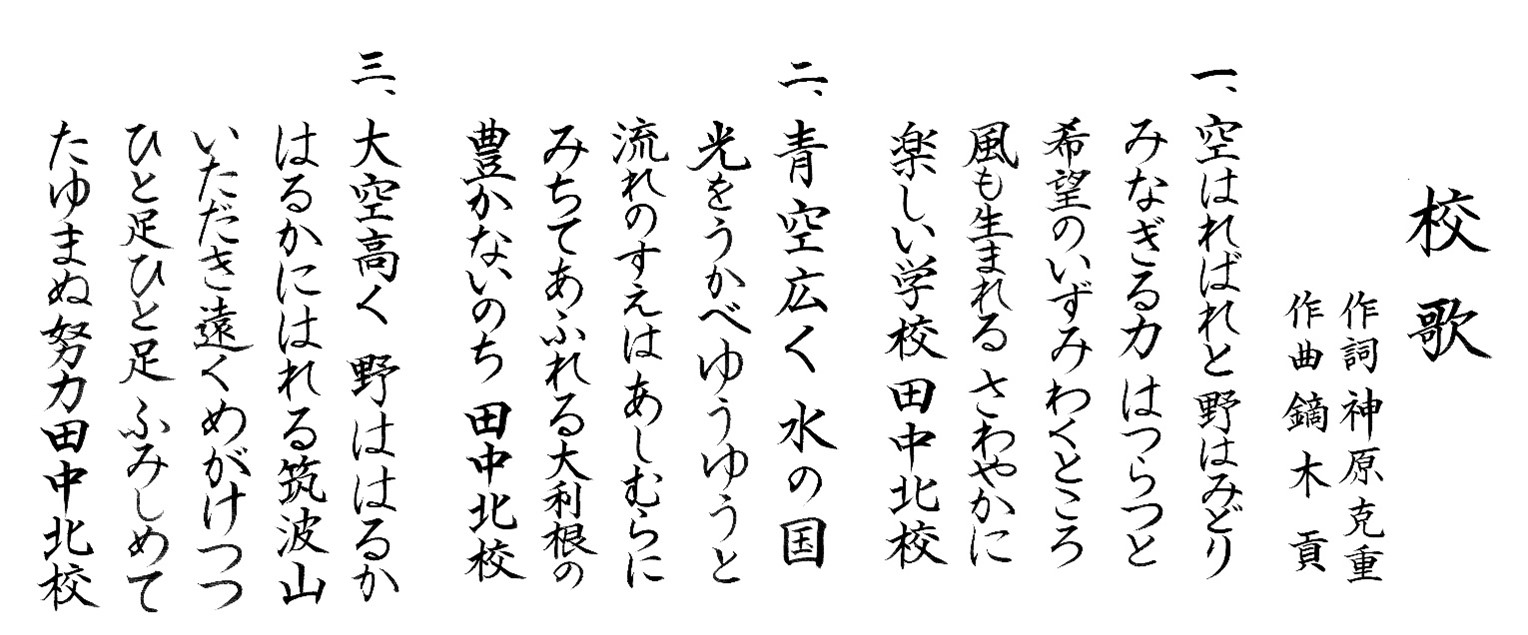 校歌
作詞 神原克重
作曲 鏑木 貢
一、空はればれと 野はみどり
みなぎる力 はつらつと
希望のいずみ わくところ
風も生まれる さわやかに
楽しい学校 田中北校
二、青空広く 水の国
光をうかべ ゆうゆうと
流れのすえは あしむらに
みちてあふれる 大利根の
豊かないのち 田中北校
三、大空高く 野ははるか
はるかにはれる 筑波山
いただき遠く めがけつつ
ひと足ひと足 ふみしめて
たゆまぬ努力 田中北校